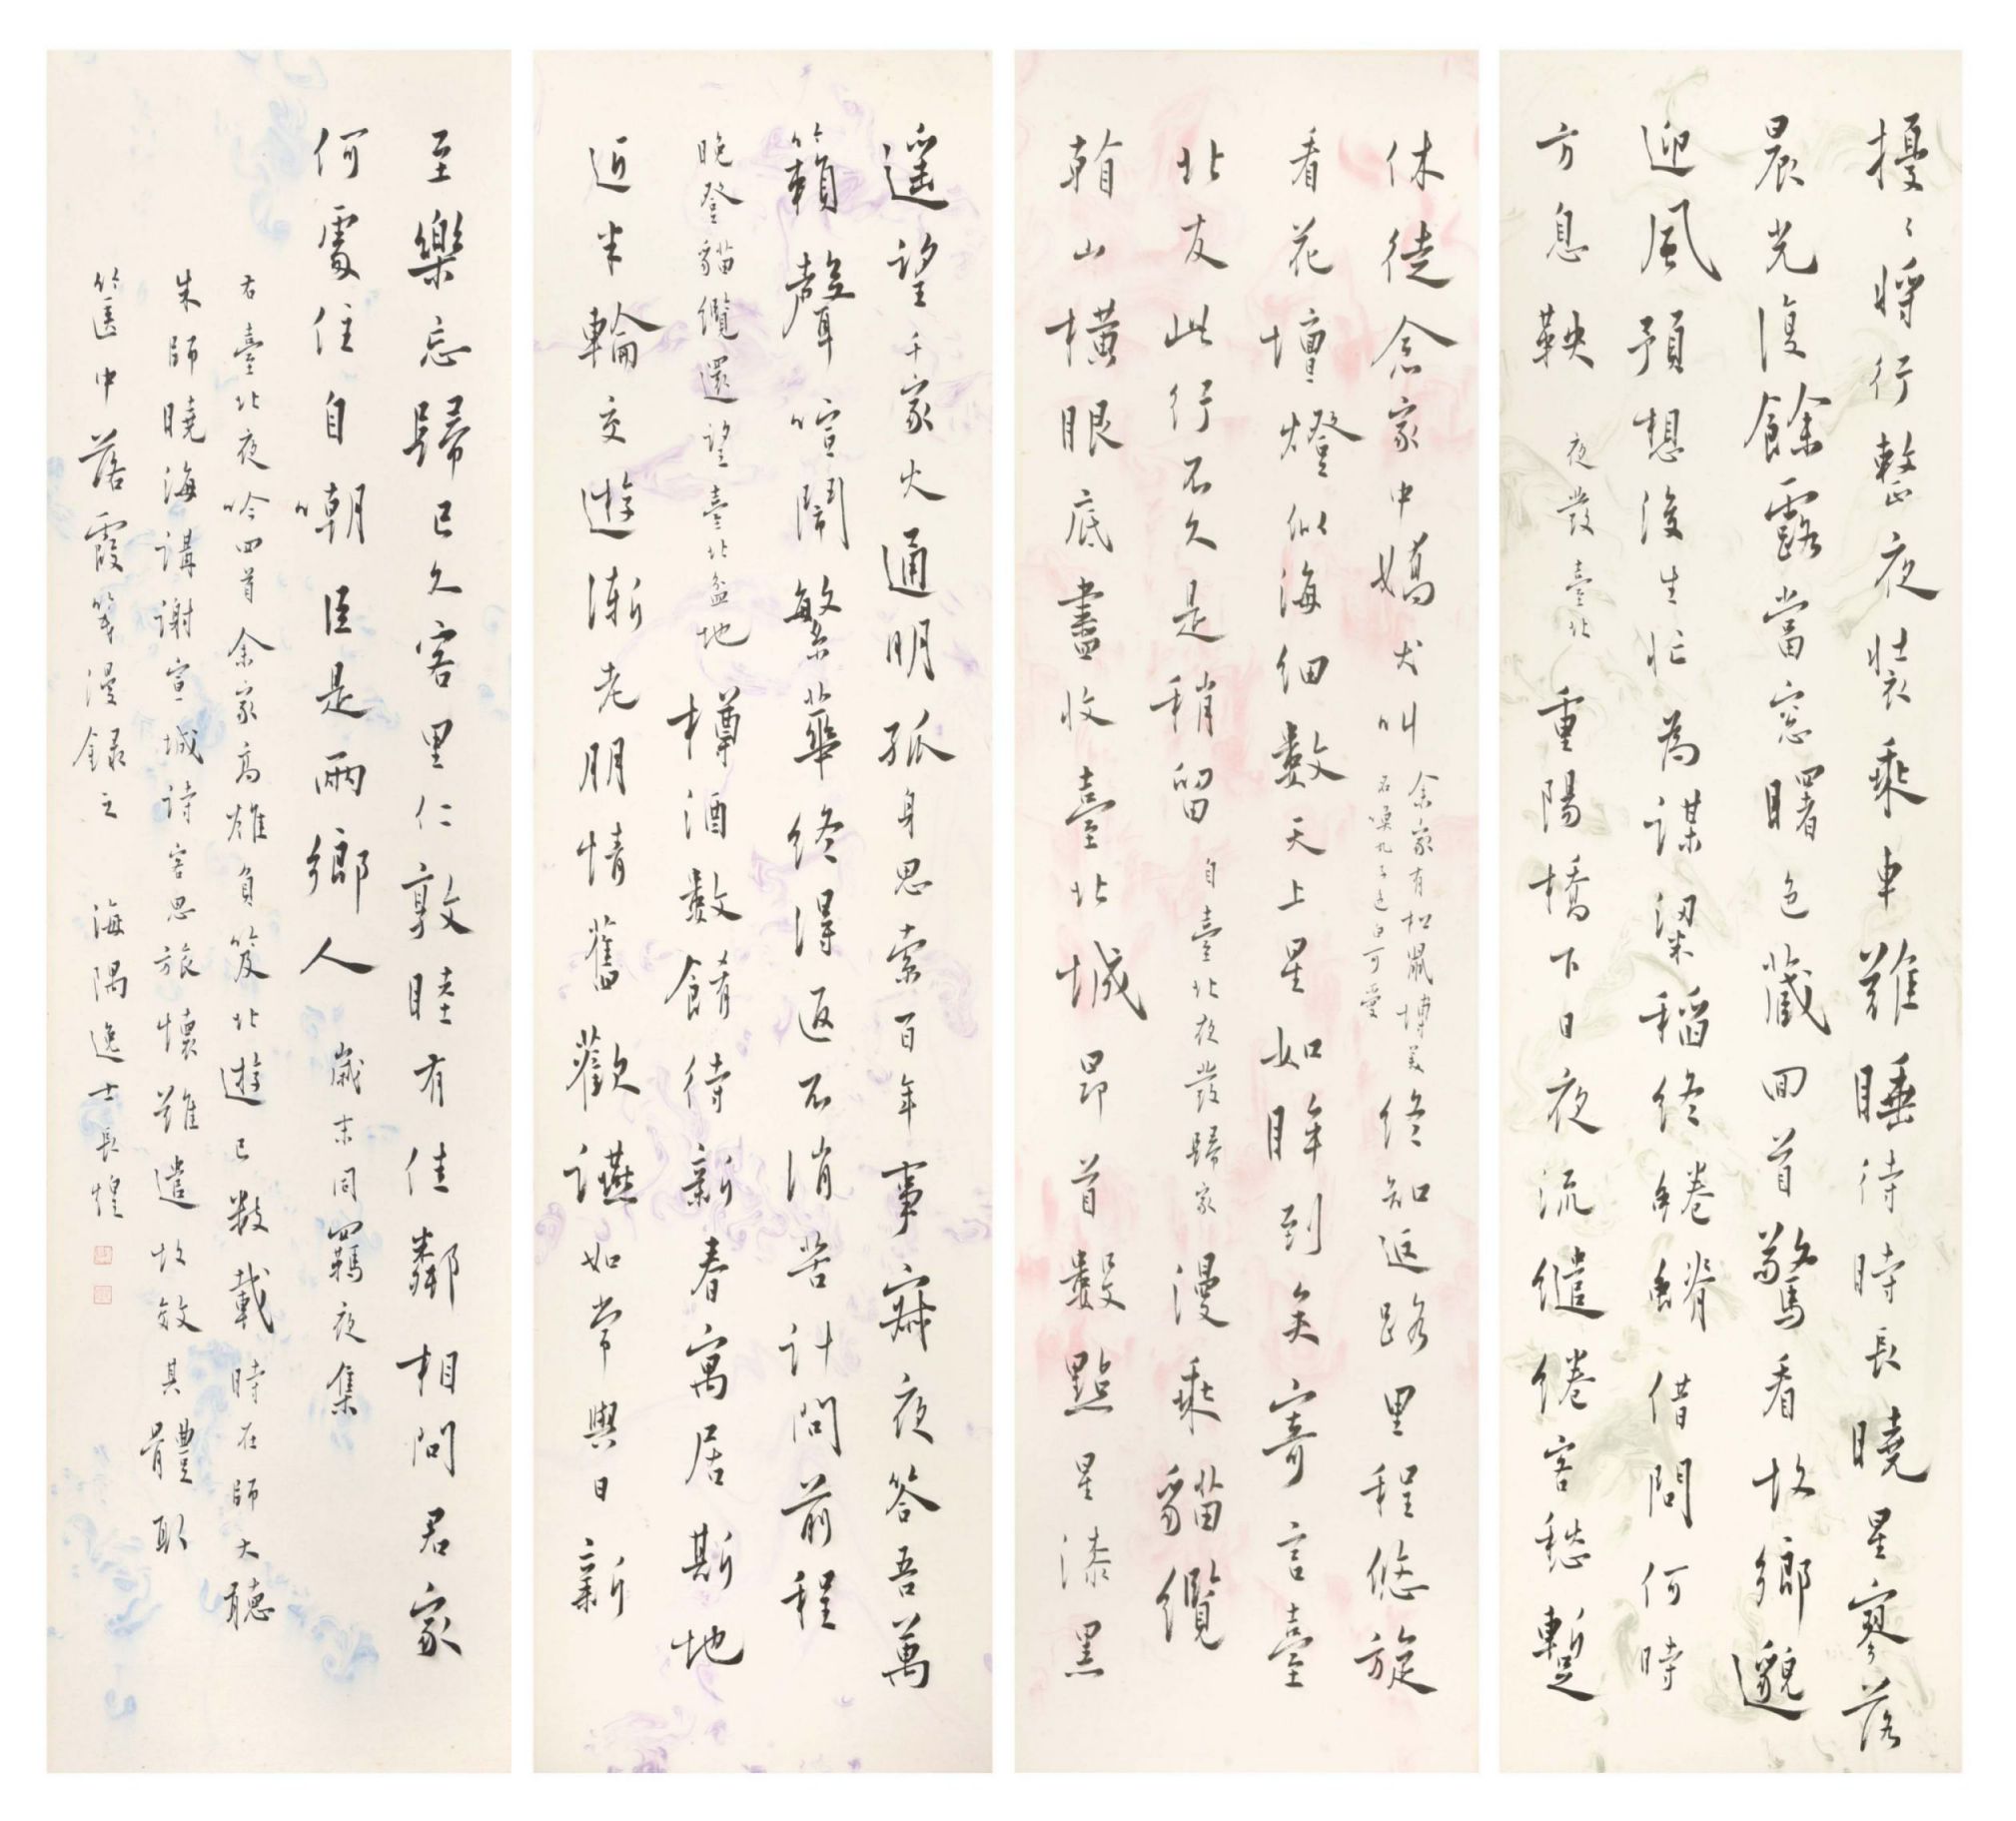 擾〻將行整夜裝乘車難睡待時長曉星寥落
晨光復餘露當窓曙色藏回首驚看故鄉邈
迎風預想後生忙為謀粱稻終綣綣借問何時
方息鞅 夜發臺北 重陽橋下日夜流繾綣客愁暫
休徒念家中嬌犬叫 余家有松鼠博美
名喚九子色白可愛
終知返路里程悠旋
看花壇燈似海細數天上星如眸到矣寄言臺
北友此行不久是稍留 自臺北夜發歸家 漫乘貓纜
翰山橫眼底盡收臺北城昂首數點星漆黑
遥望千家火通明孤身思索百年事寂夜答吾萬
籟聲喧鬧繁華終得返不消苦計問前程
晚登貓纜還望臺北盆地 樽酒數餚待新春寓居斯地
近半輪交遊漸老朋情舊歡讌如常與日新
至樂忘歸已久客里仁敦睦有佳鄰相問君家
何處住自嘲臣是兩鄉人 歲末同羈夜集
右臺北夜吟四首余家高雄負笈北遊已數載時在師大聽
朱師曉海講謝宣城詩客思旅懷難遣故效其體耳
篋中落霞箋漫錄之 海隅逸士長煌